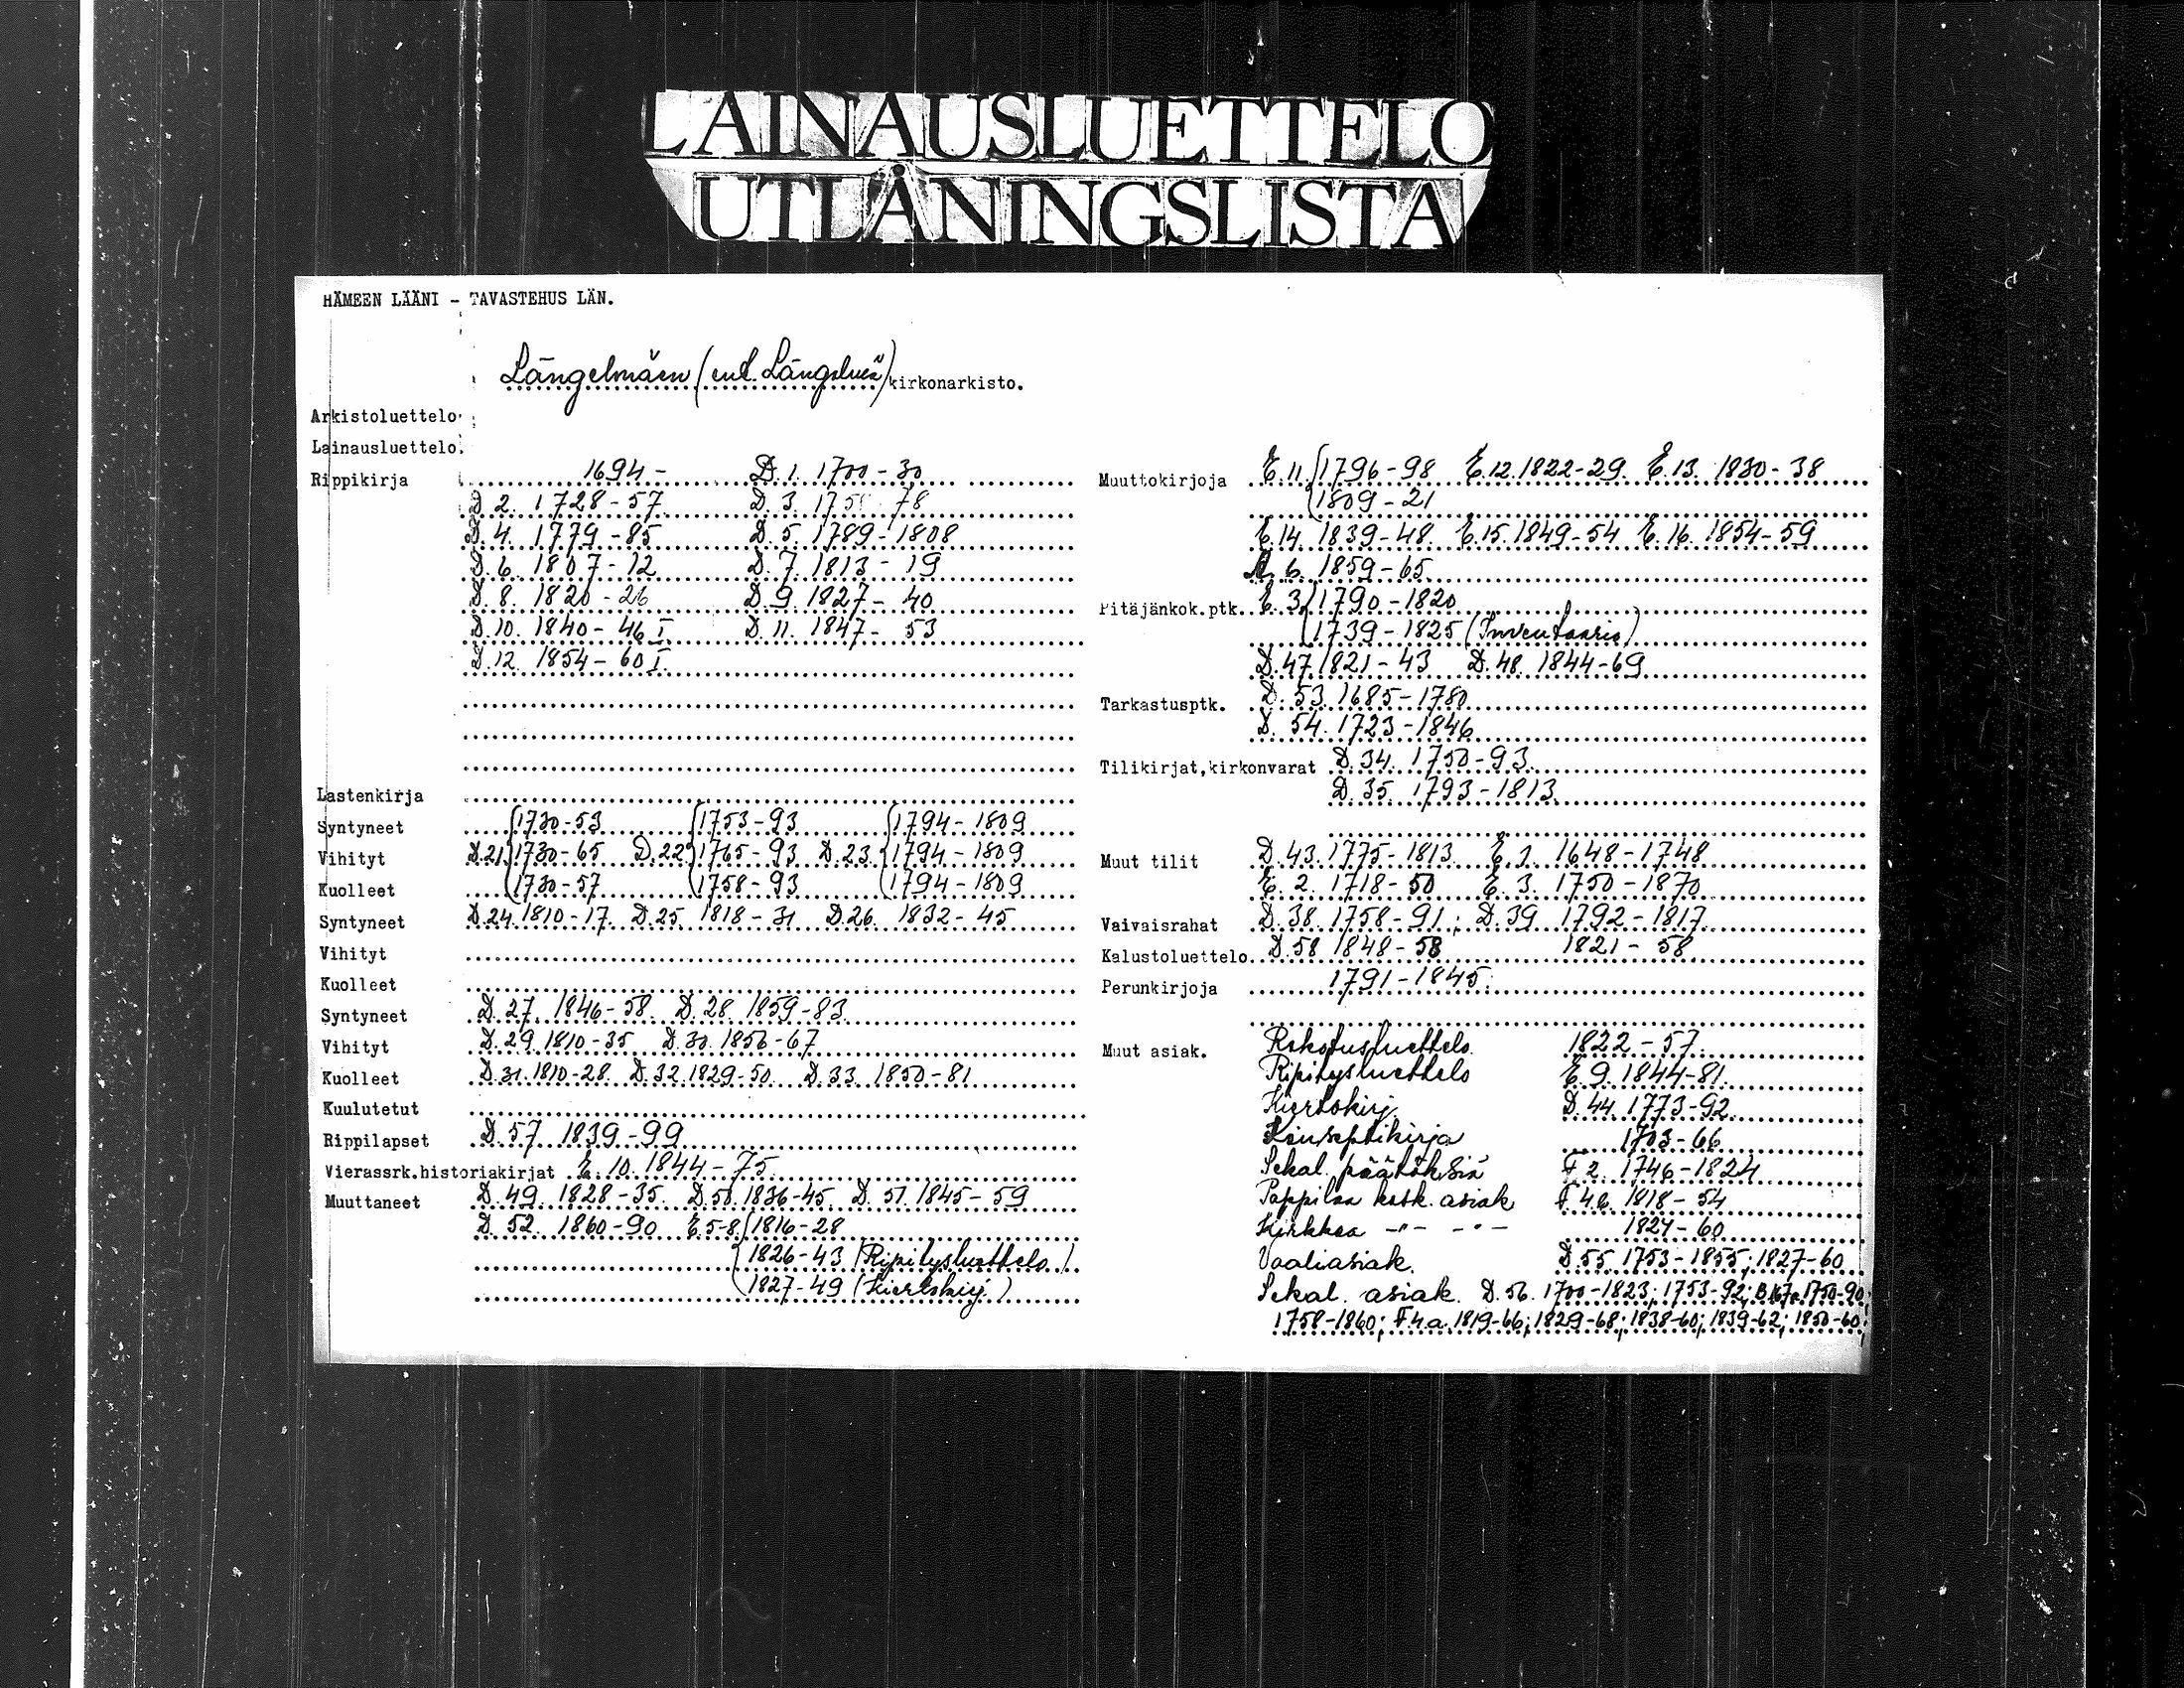 LAINAUSLUETTELO
UTLÅNINGSLISTA
HÄMEEN LÄÄNI - TAVASTEHUS LÄN.
Längelmäen (ent. Längelmä) kirkonarkisto.
Arkistoluettelo
Lainausluettelo.
Rippikirja 1694- D.1. 1700-30
D.2. 1728-57 D.3. 78
D.4. 1779-85 D.5. 1789-1808
D.6. 1807-12 D.7. 1813-19
D.8. 1820-26 D.9. 1827-40
D.10. 1840-46 I. D.11. 1847-53
D.12. 1854-60 I.
Lastenkirja
Syntyneet 1730-53 1753-93 1794-1809
Vihityt D.21. 1730-65 D.22 1765-93 D.23. 1794-1809
Kuolleet 1730-57 1758-93 1794-1809
Syntyneet D.24. 1810-17. D.25. 1818-31 D.26. 1832-45
Vihityt
Kuolleet
Syntyneet D.27. 1846-58. D.28. 1859-83.
Vihityt D.29. 1810-35 D.30. 1856-67
Kuolleet D.31. 1810-28. D.32. 1829-50. D.33. 1850-81
Kuulutetut
Rippilapset D.57. 1839-99
Vierassrk.historiakirjat E.10. 1844-75.
Muuttaneet D.49. 1828-35. D.50. 1836-45. D.51. 1845-59
D.52. 1860-90 E.5-8. 1816-28
1826-43 (Ripitysluettelo)
1827-49 (Kiertokirj.)
Muuttokirjoja E.11. 1796-98 E.12. 1822-29. E.13. 1830-38
1809-21
E.14. 1839-48. E.15. 1849-54 E.16. 1854-59
6. 1859-65
Pitäjänkok.ptk. E.3. 1790-1820
1739-1825 (Inventaario)
D.47. 1821-43 D.48. 1844-69
Tarkastusptk. D.53. 1685-1780
D.54. 1723-1846
Tilikirjat,kirkonvarat D.34. 1750-93.
D.35. 1793-1813
Muut tilit D.43. 1775-1813. E.1. 1648-1748
E.2. 1718-50 E.3. 1750-1870
Vaivaisrahat D.38. 1758-91; D.39 1792-1817.
Kalustoluettelo. D.58 1848-58 1821-58
Perunkirjoja 1791-1845.
Muut asiak. Rokotusluettelo. 1822-57.
Ripitysluettelo E.9. 1844-81.
Kiertokirj. D.44. 1773-92.
Konseptikirja 1703-66
Sekal. päätöksiä F.2. 1746-1824
Pappilaa kosk. asiak F.4b. 1818-54
Kirkkoa -"- -"- 1824-60
Vaaliasiak. D.55. 1753-1855; 1827-60
Sekal. asiak. D.56. 1700-1823; 1753-92; 1750-90;
1758-1860; F.4.a. 1819-66; 1829-68; 1838-60; 1839-62; 1850-60;